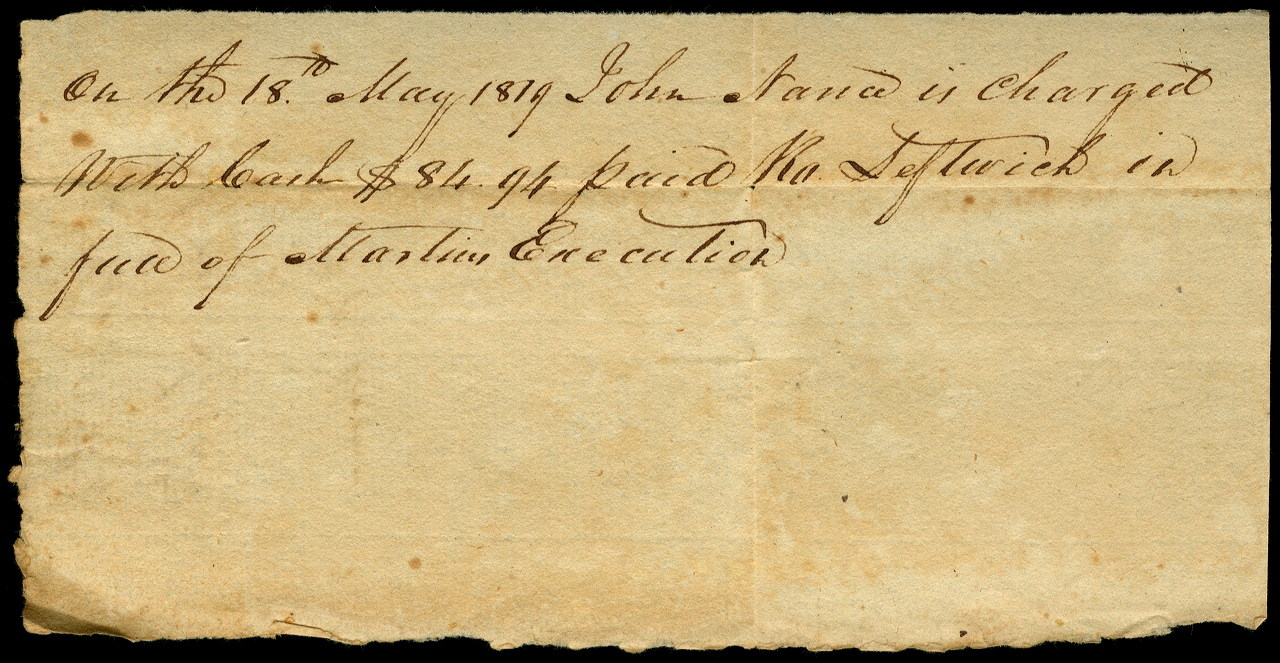 On the 18.th May 1819 John Nance is charged
With Cash $84.94 paid Ro. Leftwich in
full of Martins Execution